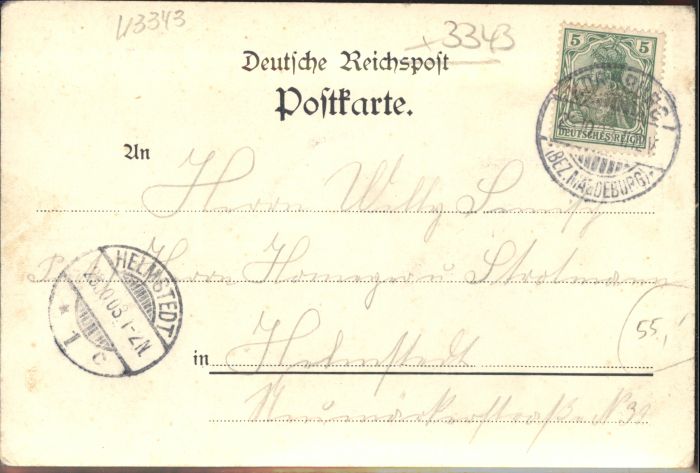 113343
x3343
Deutsche Reichspost
Postkarte.
5 5
DEUTSCHES REICH
(BEZ. MAGDEBURG)
An
Herrn Willy
Herrn Homeyer u Strotmann
HELMSTEDT
23.10.03.1-2N.
* 1 c
55,-
in Helmstedt
Neumärkerstraße N 39